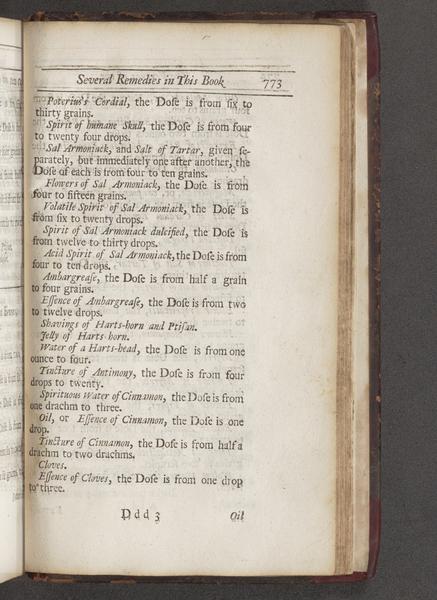 Several Remedies in This Book 773
Poterius's Cordial, the Doſe is from ſix to
thirty grains.
Spirit of humane Skull, the Doſe is from four
to twenty four drops.
Sal Armoniack, and Salt of Tartar, given ſe-
parately, but immediately one after another, the
Doſe of each is from four to ten grains.
Flowers of Sal Armoniack, the Doſe is from
four to fifteen grains.
Volatile Spirit of Sal Armoniack, the Doſe is
from ſix to twenty drops.
Spirit of Sal Armoniack dulcified, the Doſe is
from twelve to thirty drops.
Acid Spirit of Sal Armoniack, the Doſe is from
four to ten drops.
Ambargreaſe, the Doſe is from half a grain
to four grains.
Eſſence of Ambargreaſe, the Doſe is from two
to twelve drops.
Shavings of Harts-horn and Ptiſan.
Jelly of Harts-horn.
Water of a Harts-head, the Doſe is from one
ounce to four.
Tincture of Antimony, the Doſe is from four
drops to twenty.
Spirituous Water of Cinnamon, the Doſe is from
one drachm to three.
Oil, or Eſſence of Cinnamon, the Doſe is one
drop.
Tincture of Cinnamon, the Doſe is from half a
drachm to two drachms.
Cloves.
Eſſence of Cloves, the Doſe is from one drop
to three.
Ddd 3 Oil